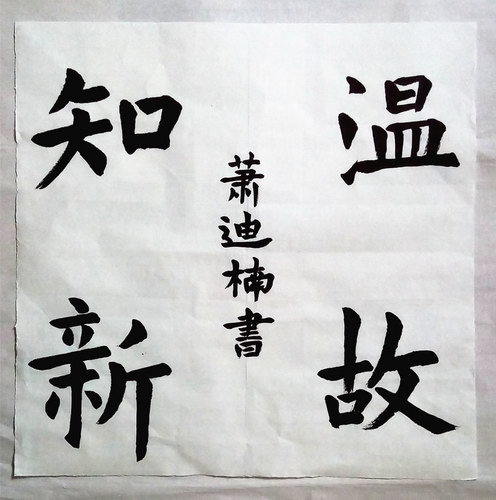 温故
知新
萧迪楠書